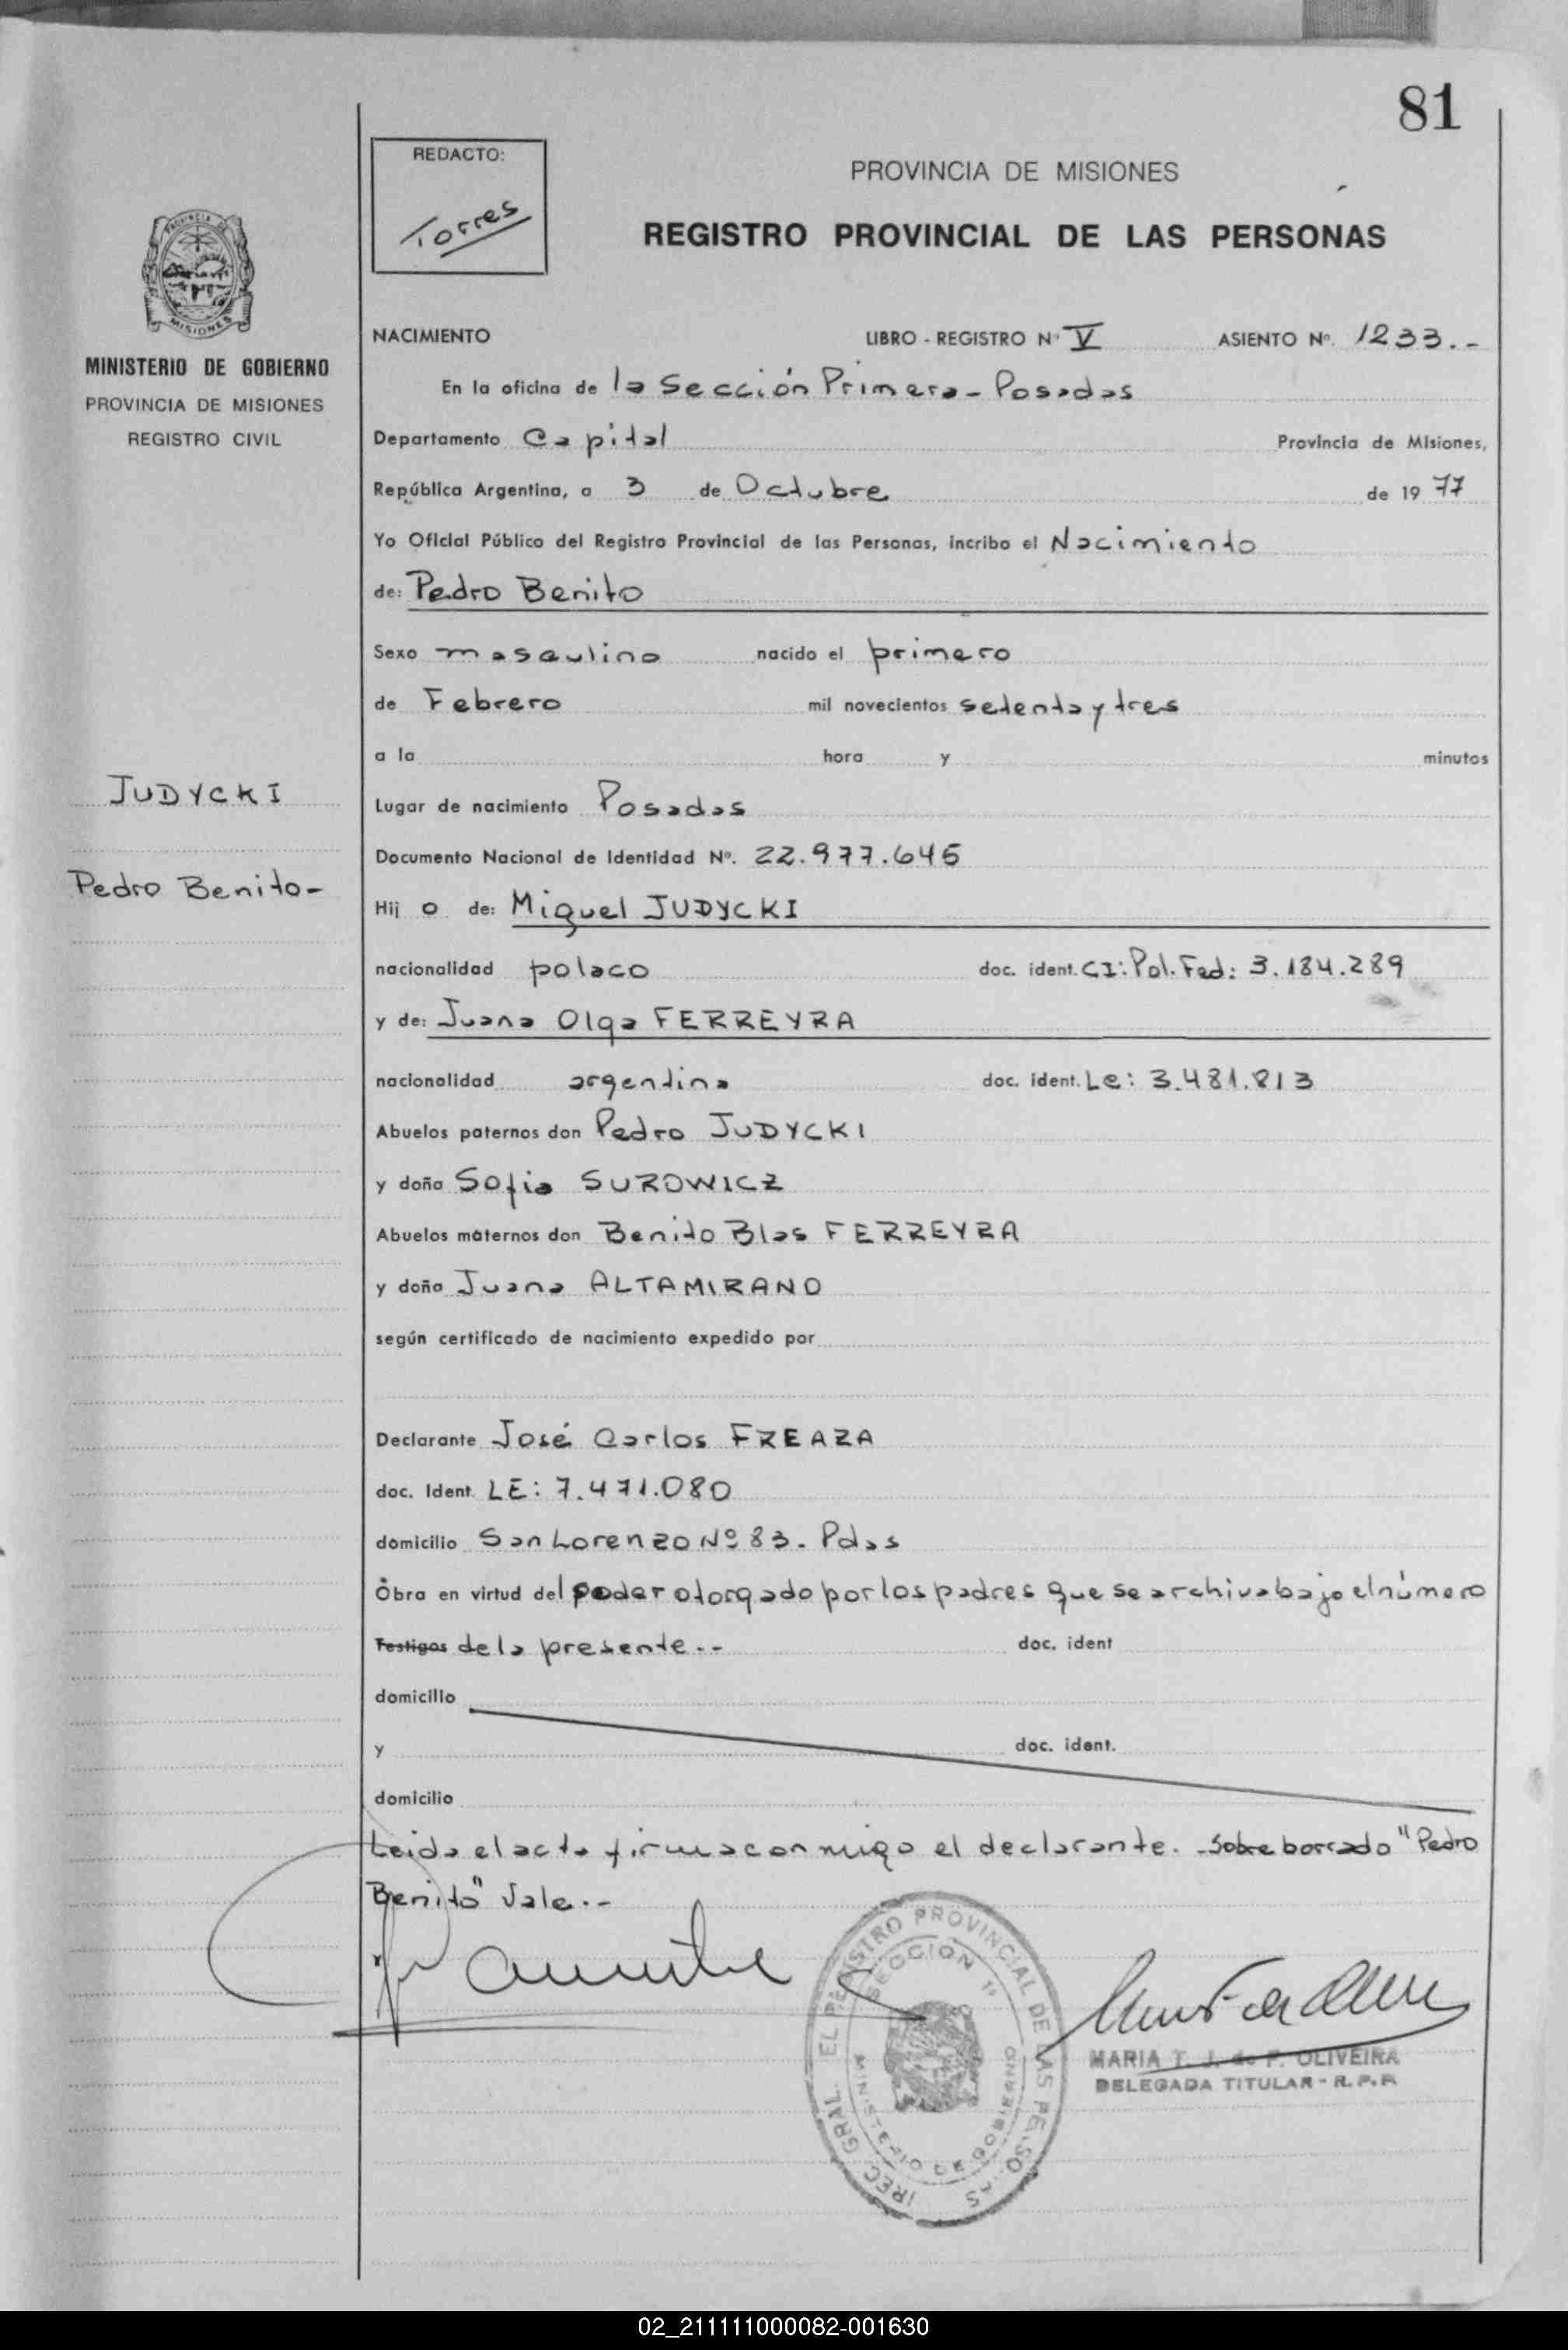 81
REDACTO:
Torres
PROVINCIA DE MISIONES
REGISTRO PROVINCIAL DE LAS PERSONAS
PROVINCIA
MISIONES
MINISTERIO DE GOBIERNO
PROVINCIA DE MISIONES
REGISTRO CIVIL
NACIMIENTO LIBRO - REGISTRO Nº V ASIENTO Nº. 1233.-
En la oficina de la Sección Primera - Posadas
Departamento Capital Provincia de Misiones,
República Argentina, a 3 de Octubre de 1977
Yo Oficial Público del Registro Provincial de las Personas, incribo el Nacimiento
de: Pedro Benito
Sexo masculino nacido el primero
de Febrero mil novecientos setenta y tres
a la hora y minutos
JUDYCKI
Lugar de nacimiento Posadas
Documento Nacional de Identidad Nº. 22.977.645
Pedro Benito-
Hij o de: Miguel JUDYCKI
nacionalidad polaco doc. ident. CI: Pol. Fed: 3.184.289
y de: Juana Olga FERREYRA
nacionalidad argentina doc. ident. Le: 3.481.813
Abuelos paternos don Pedro JUDYCKI
y doña Sofia SUROWICZ
Abuelos maternos don Benito Blas FERREYRA
y doña Juana ALTAMIRANO
según certificado de nacimiento expedido por
Declarante José Carlos FREAZA
doc. Ident. LE: 7.471.080
domicilio San Lorenzo Nº 83. Pdas
Obra en virtud del poder otorgado por los padres que se archiva bajo el número
Testigos de la presente.-- doc. ident
domicilio
y doc. ident.
domicilio
Leida el acta firma conmigo el declarante. Sobreborrado "Pedro
Benito" Vale.--
REGISTRO PROVINCIAL DE LAS
SECCION 1º
MINISTERIO DE GOBIERNO
MARIA T. J. de F. OLIVEIRA
DELEGADA TITULAR - R.P.P.
02_211111000082-001630